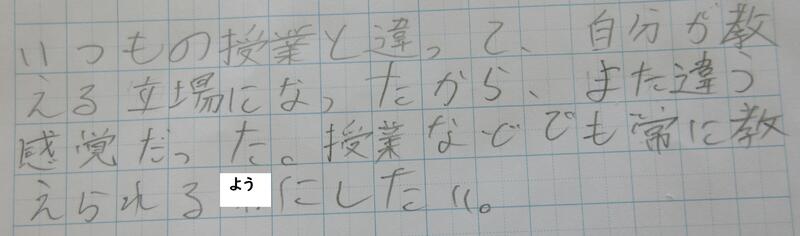 いつもの授業と違って、自分が教
える立場になったから、また違う
感覚だった。授業などでも常に教
えられるようにしたい。